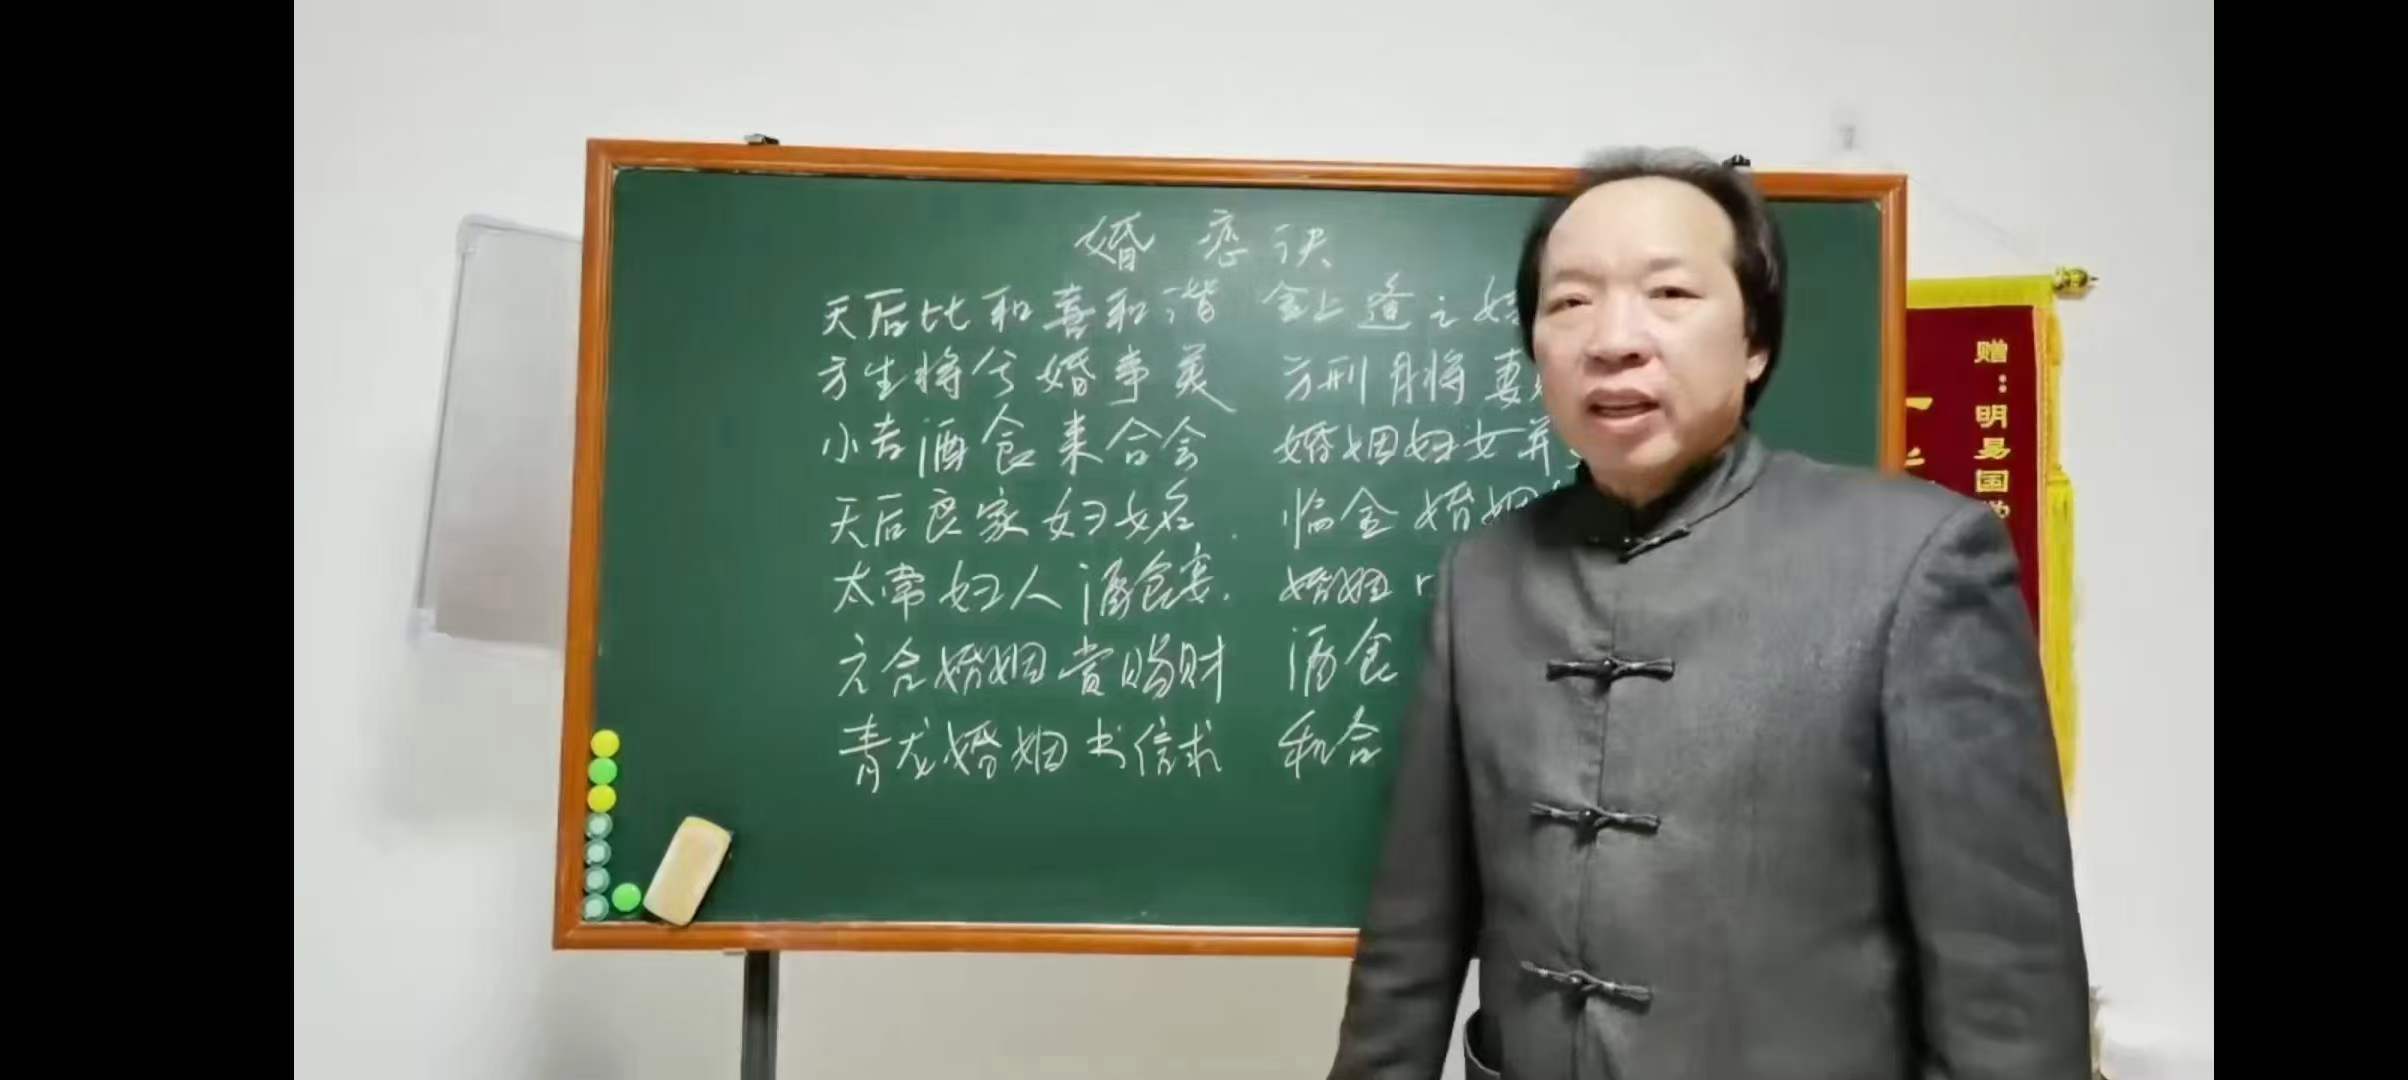 婚恋诀
天后比和喜和谐 金上逢之
方生将兮婚事美 方刑月将妻
小吉酒食来合会 婚姻妇女并
天后良家妇女名. 临金婚姻
太常妇人酒食宴. 婚姻
六合婚姻赏赐财 酒食
青龙婚姻书信求 和合
赠：明易国学